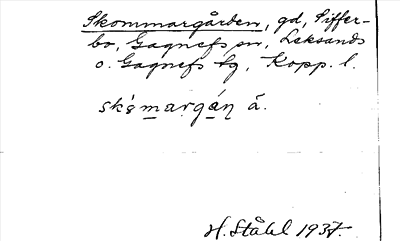 Skommargården, gd, Siffer-
bo, Gagnefs sn, Leksands
o. Gagnefs tg, Kopp. l.
skómargán̥ ä.
H. Ståhl 1937.